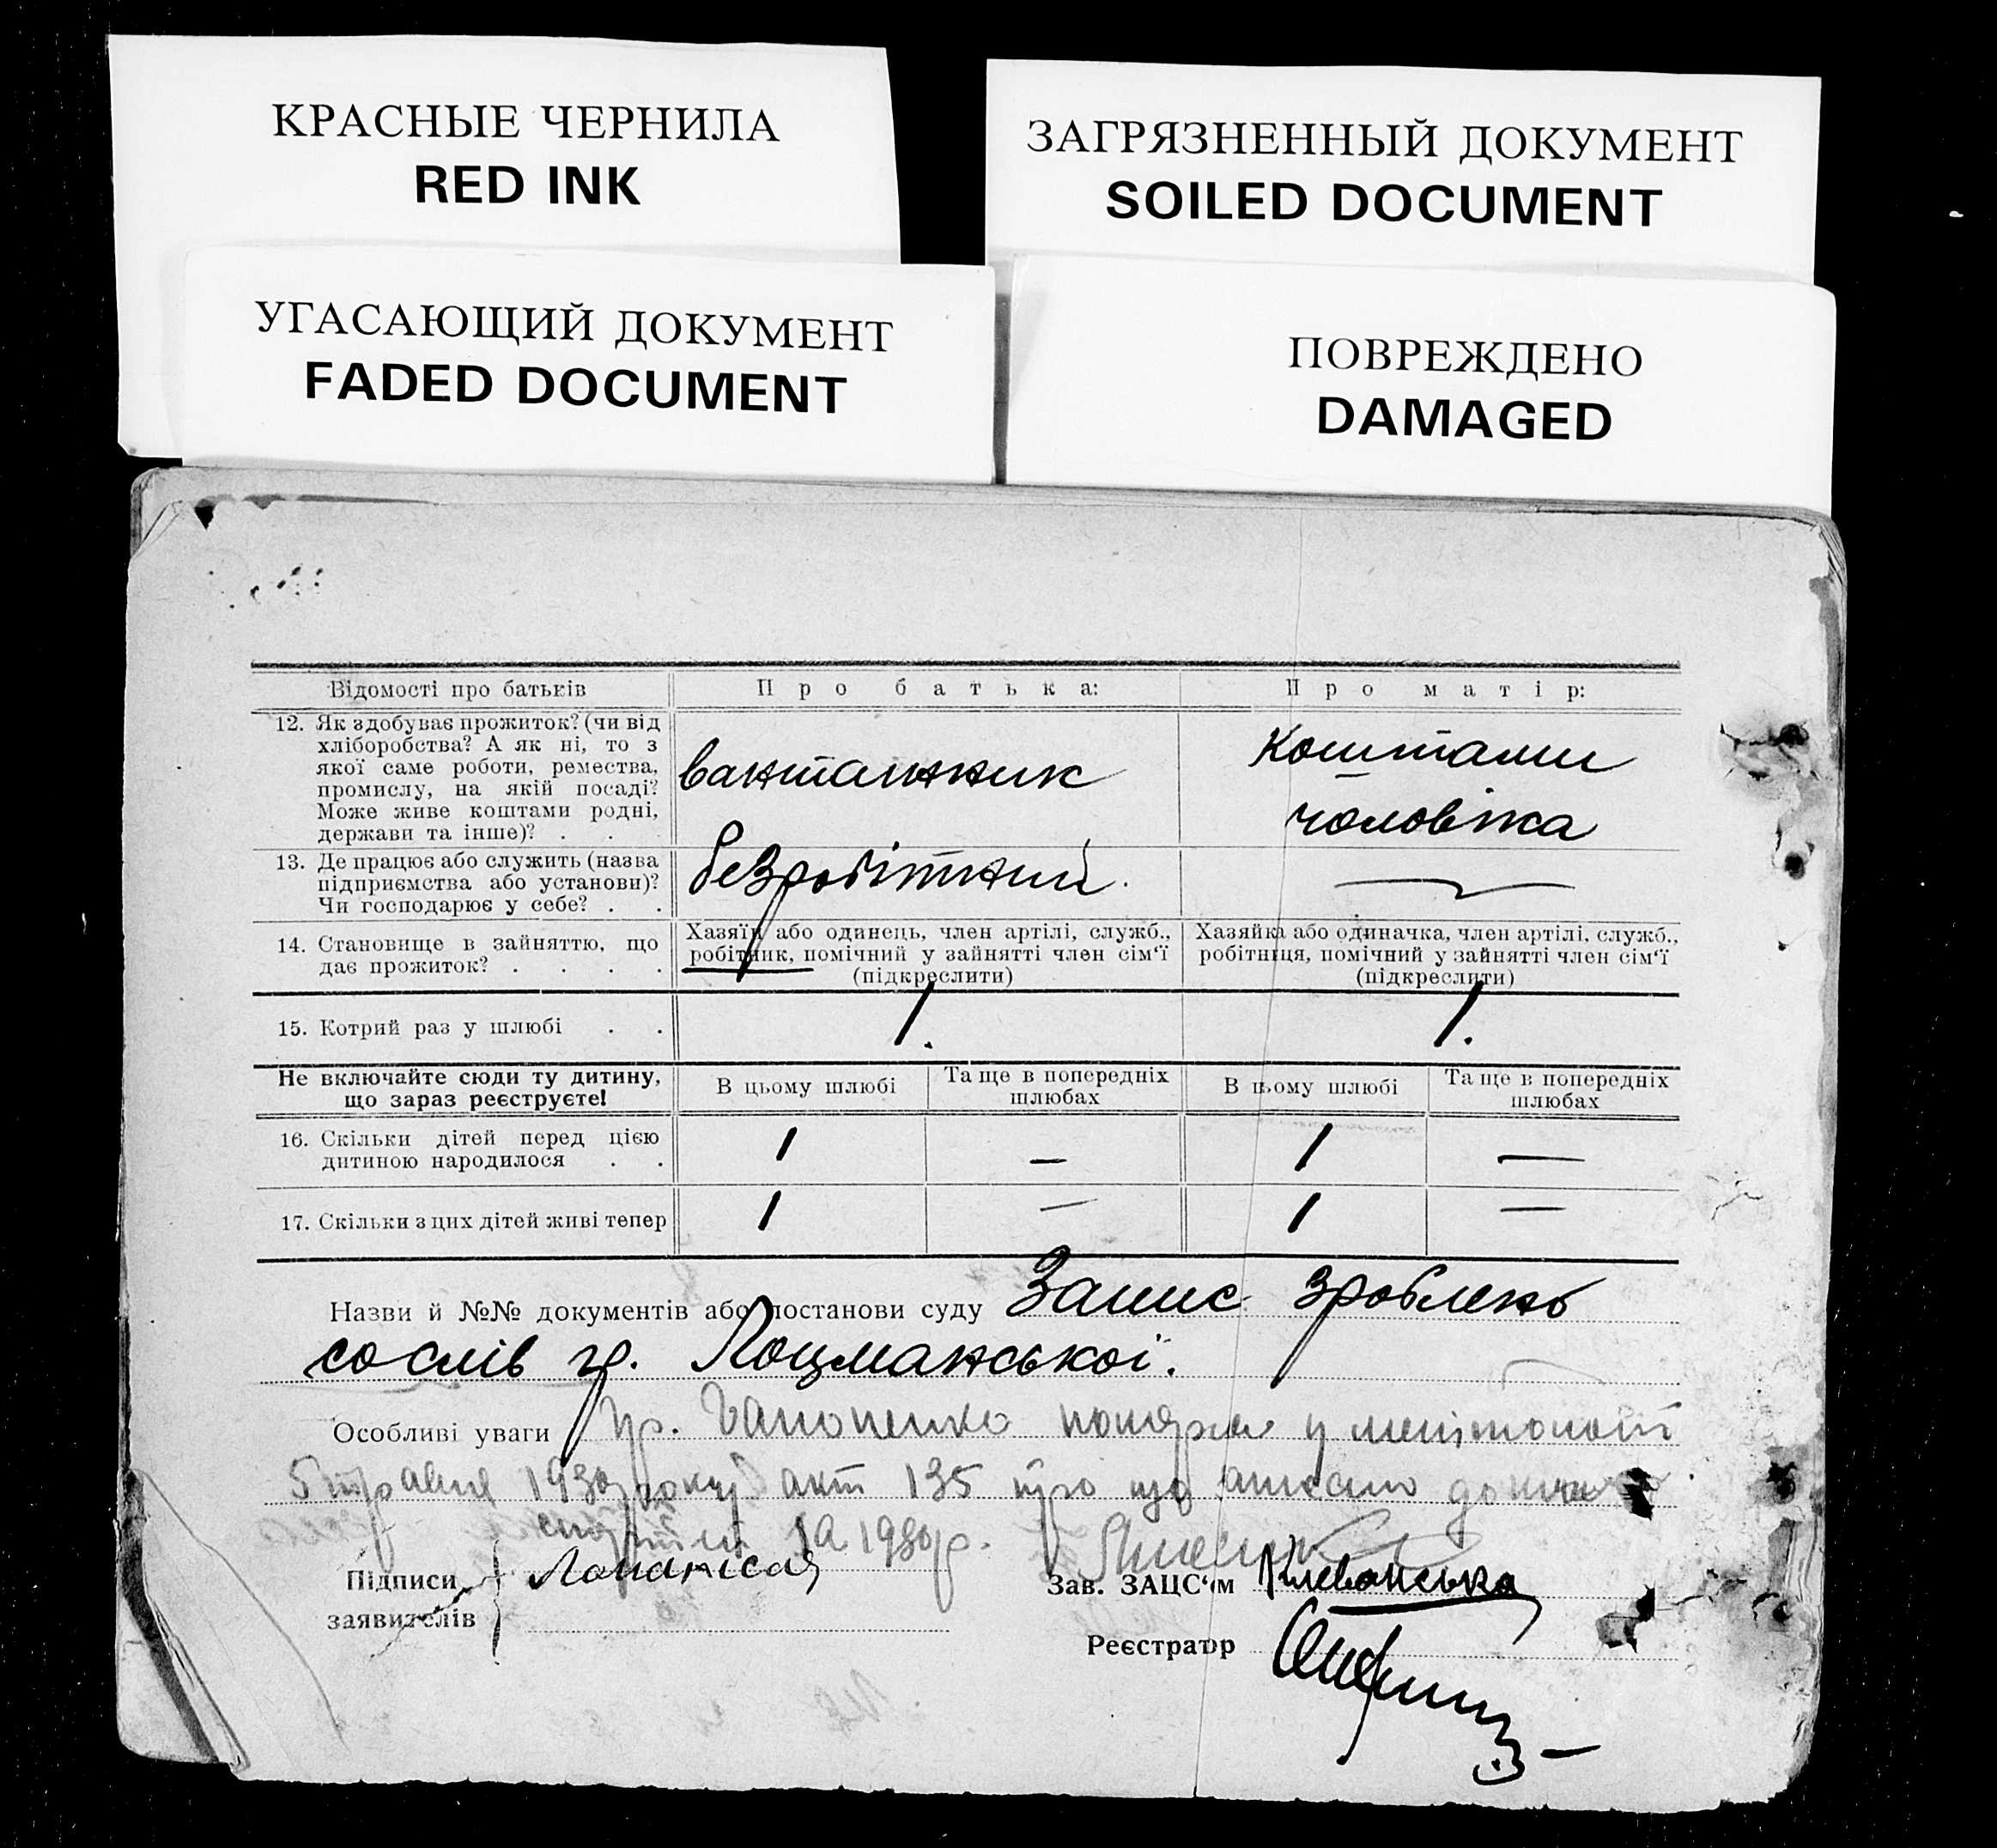 КРАСНЫЕ ЧЕРНИЛА
RED INK
ЗАГРЯЗНЕННЫЙ ДОКУМЕНТ
SOILED DOCUMENT
УГАСАЮЩИЙ ДОКУМЕНТ
FADED DOCUMENT
ПОВРЕЖДЕНО
DAMAGED
Відомості про батьків
Про батька:
Про матір:
12. Як здобуває прожиток? (чи від
хліборобства? А як ні, то з
якої саме роботи, ремества,
промислу, на якій посаді?
Може живе коштами родні,
держави та інше)? . .
вантажник
коштами
чоловіка
13. Де працює або служить (назва
підприємства або установи)?
Чи господарює у себе? . .
безробітний.
14. Становище в зайняттю, що
дає прожиток? . . . .
Хазяїн або одинець, член артілі, служб.,
робітник, помічний у зайнятті член сім'ї
(підкреслити)
Хазяйка або одиначка, член артілі, служб.,
робітниця, помічний у зайнятті член сім'ї
(підкреслити)
15. Котрий раз у шлюбі . .
1.
1.
Не включайте сюди ту дитину,
що зараз реєструєте!
В цьому шлюбі
Та ще в попередніх
шлюбах
В цьому шлюбі
Та ще в попередніх
шлюбах
16. Скільки дітей перед цією
дитиною народилося . .
1
—
1
—
17. Скільки з цих дітей живі тепер
1
—
1
—
Назви й №№ документів або постанови суду Запис зроблено
со слів гр. Лоцманської.
Особливі уваги гр. у
5 травня 1930 року акт 135 про що
1930 р.
Підписи
заявителів
Зав. ЗАЦС'ом
Реєстратор